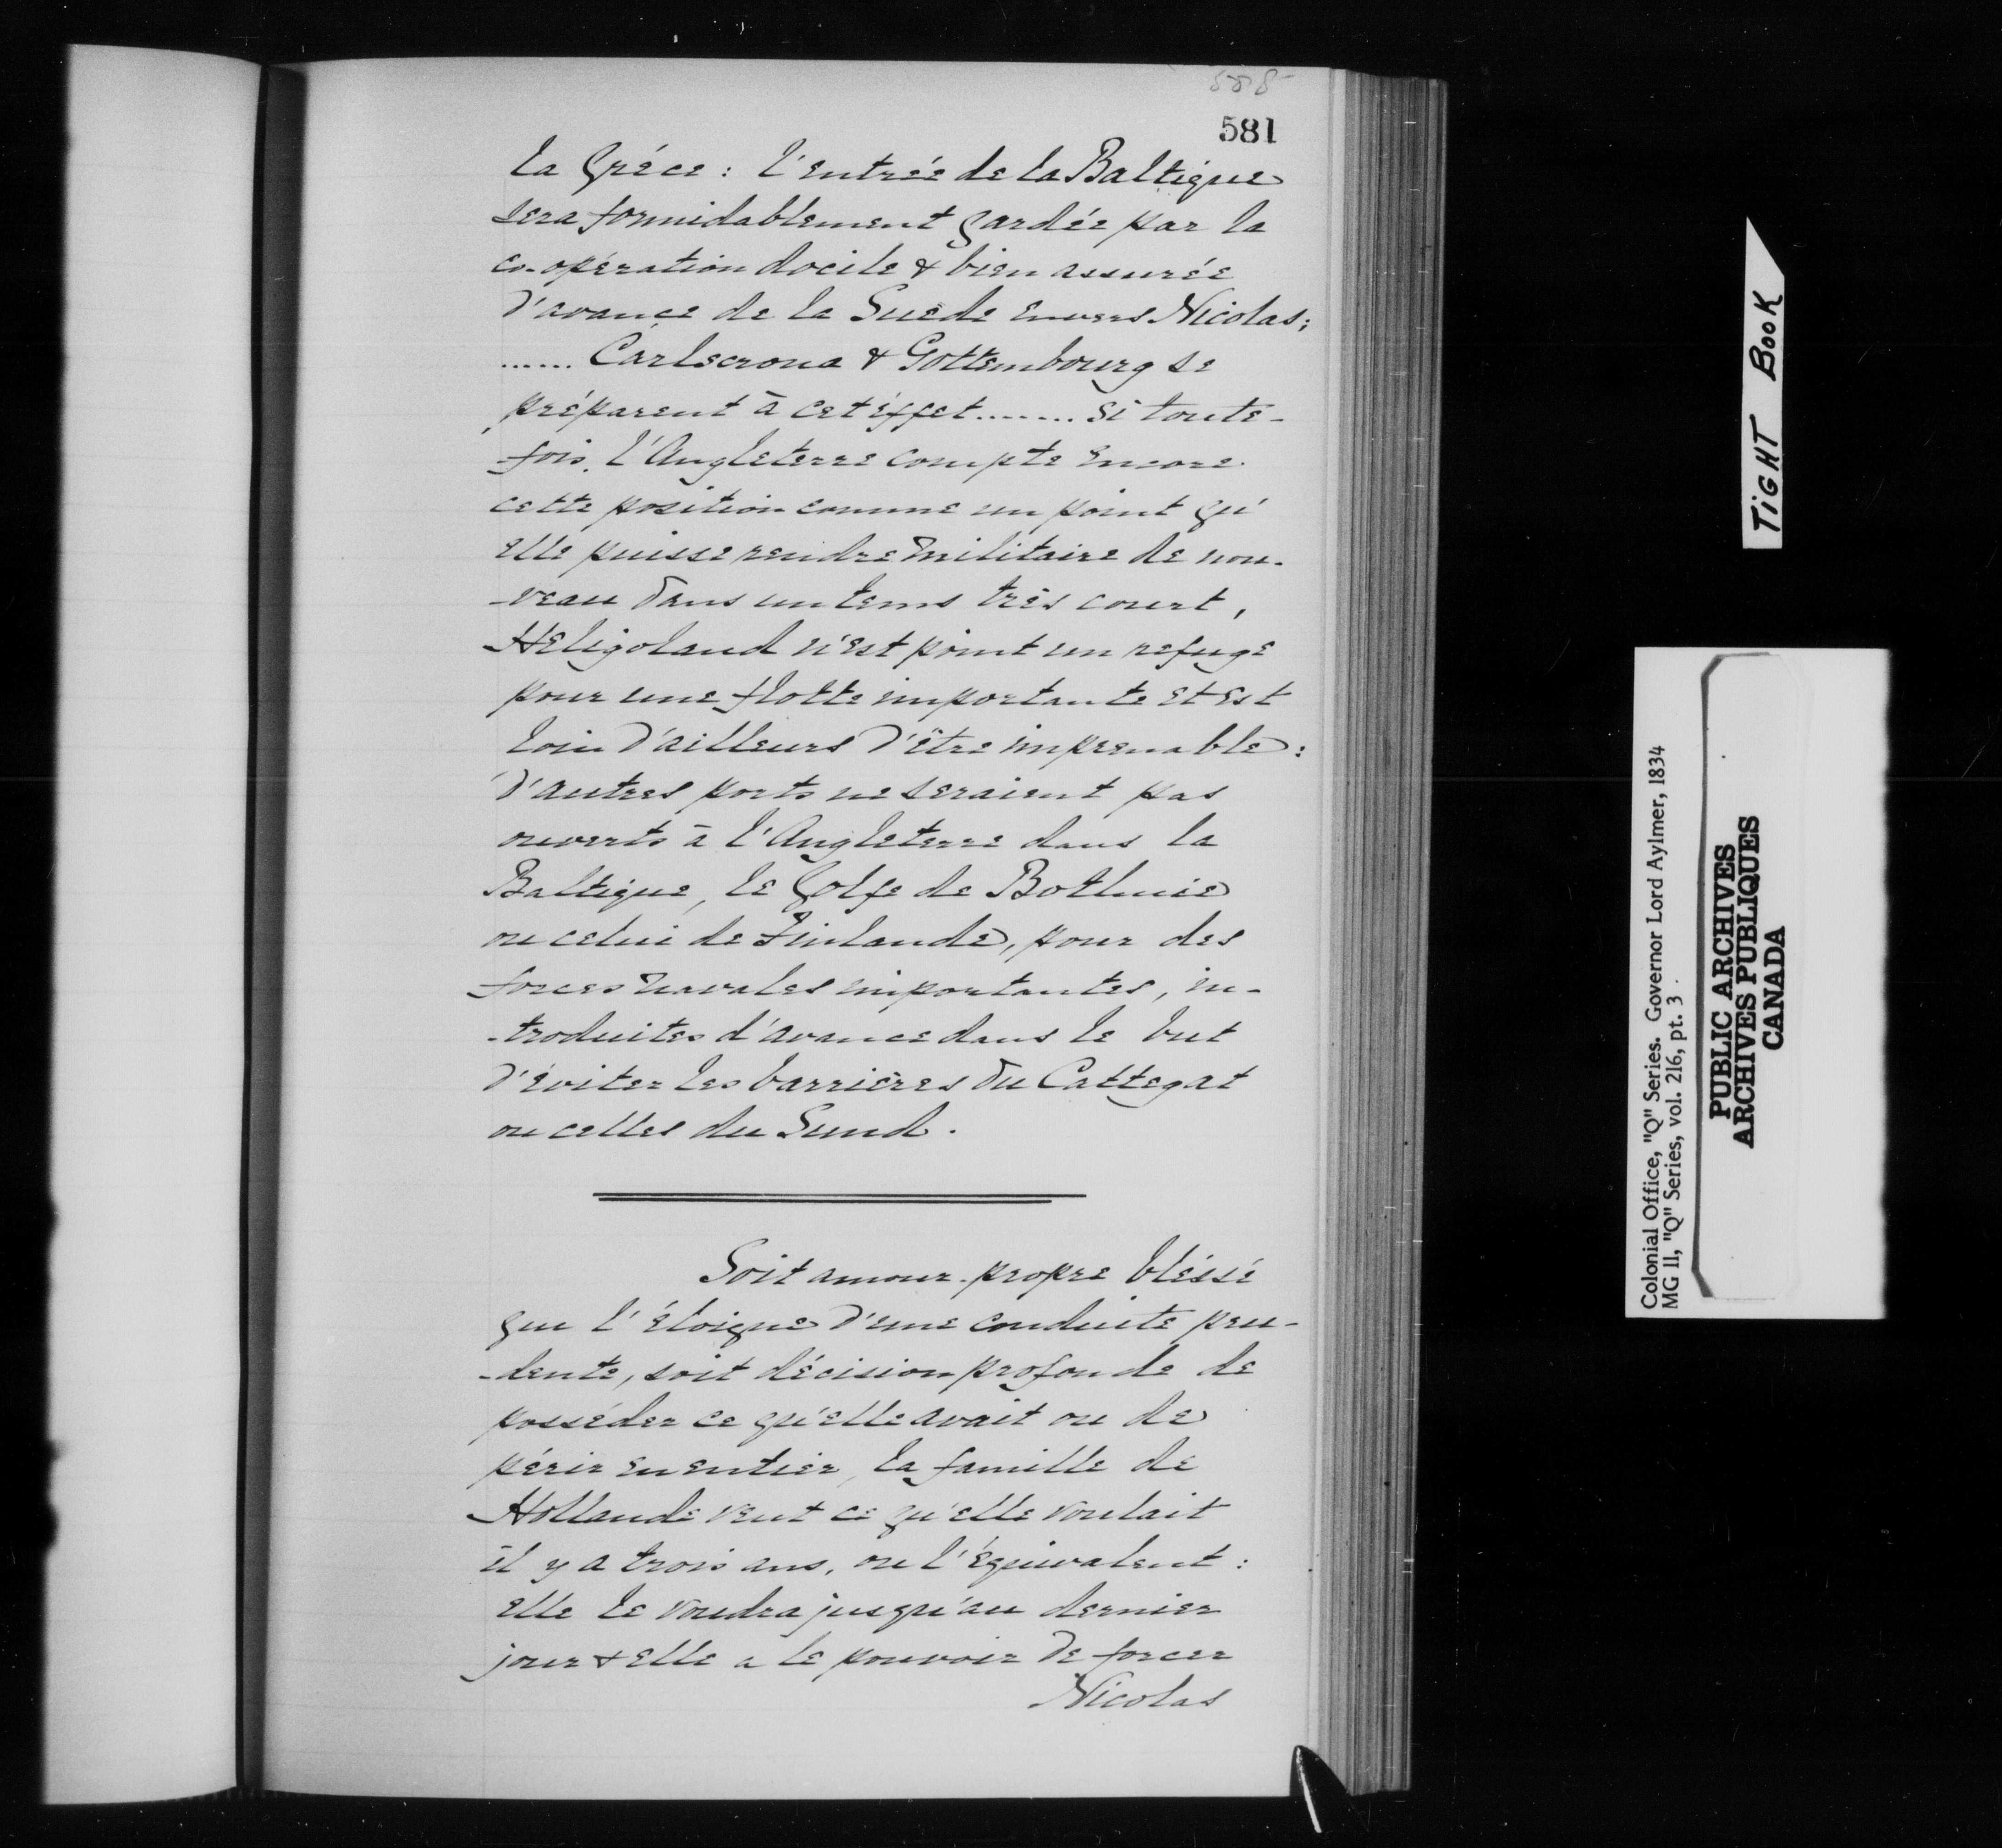 558
581
la Gréce: l'entrée de la Baltique
sera formidablement gardée par la
co-opération docile & bien assurée
d'avance de la Suede envers Nicolas;
...... Carlscrona & Gottembourg se
préparent à cet éffet........ si toute-
-fois, l'Angleterre compte encore
cette position comme un point qu'
elle puisse rendre militaire de nou-
-veau dans un tems très court,
Heligoland n'est point un refuge
pour une flotte importante et est
loin d'ailleurs d'être imprenable:
d'autres ports ne seraient pas
ouverts à l'Angleterre dans la
Baltique, le Golfe de Bothnie
ou celui de Finlande, pour des
forces navales importantes, in-
-troduites d'avance dans le but
d'éviter les barrières du Cattegat
ou celles du Sund.
Soit amour-propre bléssé
que l'éloigne d'une conduite pru-
-dente, soit décision profonde de
posséder ce qu'elle avait ou de
périr en entier, la famille de
Hollande veut ce qu'elle voulait
il y a trois ans, ou l'équivalent:
elle le voudra jusqu'au dernier
jour & elle a le pouvoir de forcer
Nicolas
TIGHT BOOK
Colonial Office, "Q" Series. Governor Lord Aylmer, 1834
MG 11, "Q" Series, vol. 216, pt. 3
PUBLIC ARCHIVES
ARCHIVES PUBLIQUES
CANADA